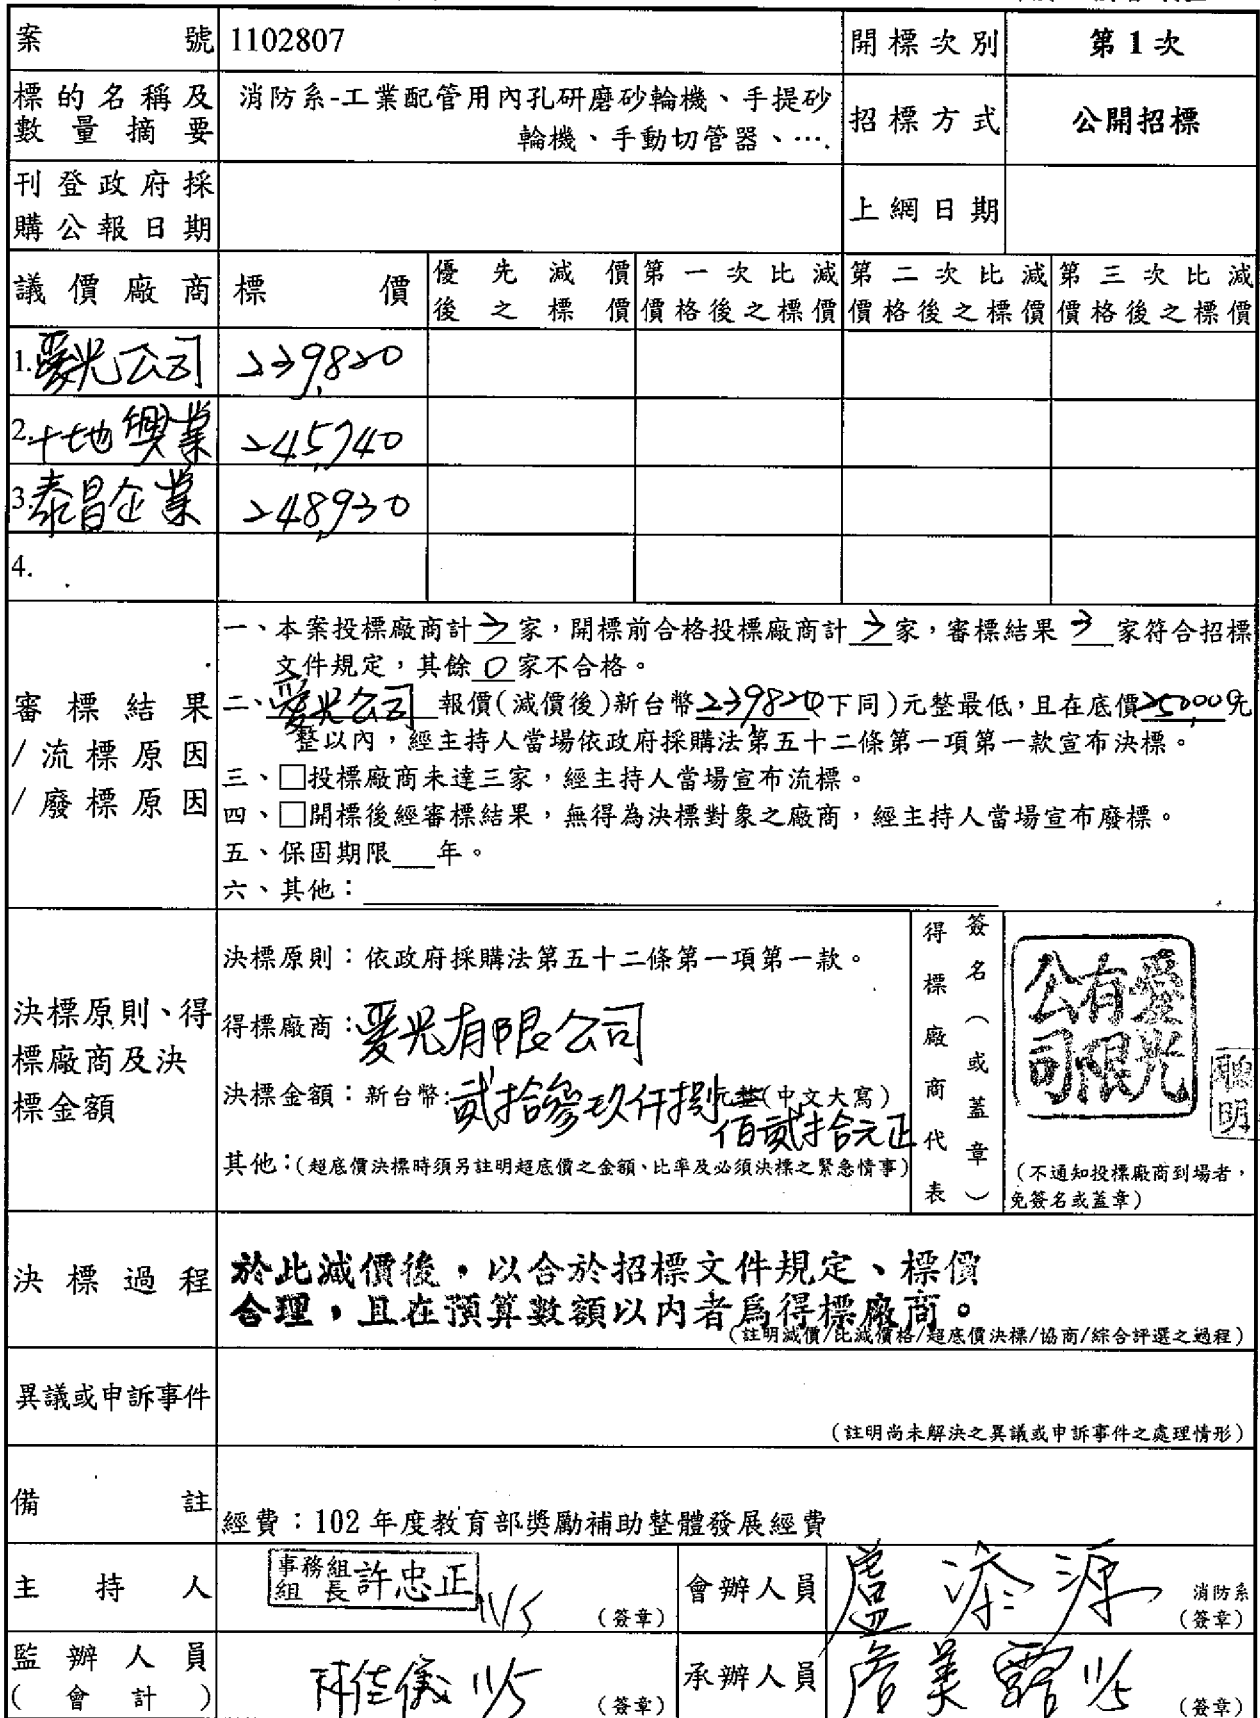 案號 1102807 開標次別 第1次
標的名稱及數量摘要 消防系-工業配管用內孔研磨砂輪機、手提砂
輪機、手動切管器、…. 招標方式 公開招標
刊登政府採購公報日期 上網日期
議價廠商 標價 優先減價後之標價 第一次比減價格後之標價 第二次比減價格後之標價 第三次比減價格後之標價
1.愛光公司 239,820
2.十七地興業 245,740
3.泰昌企業 248,930
4.
審標結果/流標原因/廢標原因
一、本案投標廠商計3家,開標前合格投標廠商計3家,審標結果3家符合招標
文件規定,其餘0家不合格。
二、愛光公司報價(減價後)新台幣239820(下同)元整最低,且在底價250,000元
整以內,經主持人當場依政府採購法第五十二條第一項第一款宣布決標。
三、□投標廠商未達三家,經主持人當場宣布流標。
四、□開標後經審標結果,無得為決標對象之廠商,經主持人當場宣布廢標。
五、保固期限___年。
六、其他:
決標原則、得標廠商及決標金額
決標原則:依政府採購法第五十二條第一項第一款。
得標廠商:愛光有限公司
決標金額:新台幣:貳拾參玖仟捌元整(中文大寫)
佰貳拾元正
其他:(超底價決標時須另註明超底價之金額、比率及必須決標之緊急情事)
得標廠商代表簽名(或蓋章)
愛光有限公司
聰明
(不通知投標廠商到場者,
免簽名或蓋章)
決標過程
於比減價後,以合於招標文件規定、標價
合理,且在預算數額以內者為得標廠商。
(註明減價/比減價格/超底價決標/協商/綜合評選之過程)
異議或申訴事件
(註明尚未解決之異議或申訴事件之處理情形)
備註
經費:102年度教育部獎勵補助整體發展經費
主持人 事務組組長許忠正 11/5 (簽章) 會辦人員 盧添源 消防系
(簽章)
監辦人員(會計) 林佳儀 11/5 (簽章) 承辦人員 詹美露 11/5 (簽章)